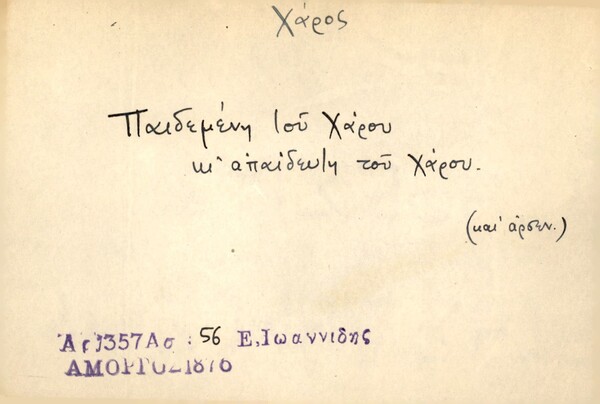 Χάρος
Παιδεμένη τοῦ Χάρου
κι' ἀπαίδευτη τοῦ Χάρου.
(καὶ ἀρσεν.)
Ἀρ. 1357Ασ : 56 Ε. Ιωαννιδης
ΑΜΟΡΓΟΣ 1876